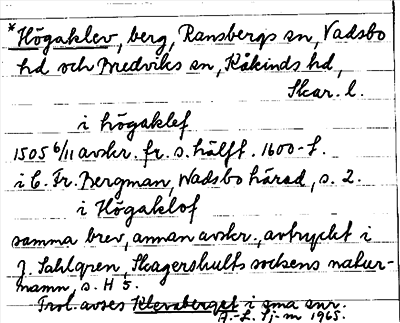 *Högaklev, berg, Ransbergs sn, Vadsbo
hd och Bredviks sn, Kåkinds hd,
Skar. l.
i högaklef
1505 6/11 avskr. fr. s. hälft. 1600-t.
i C. Fr. Bergman, Wadsbo härad, s. 2.
i Högaklof
samma brev, annan avskr., avtryckt i
J. Sahlgren, Skagershults sockens natur-
namn, s. H 5.
Trol. avses Klevaberget i sma snr.
A.-L. Lj-m 1965.